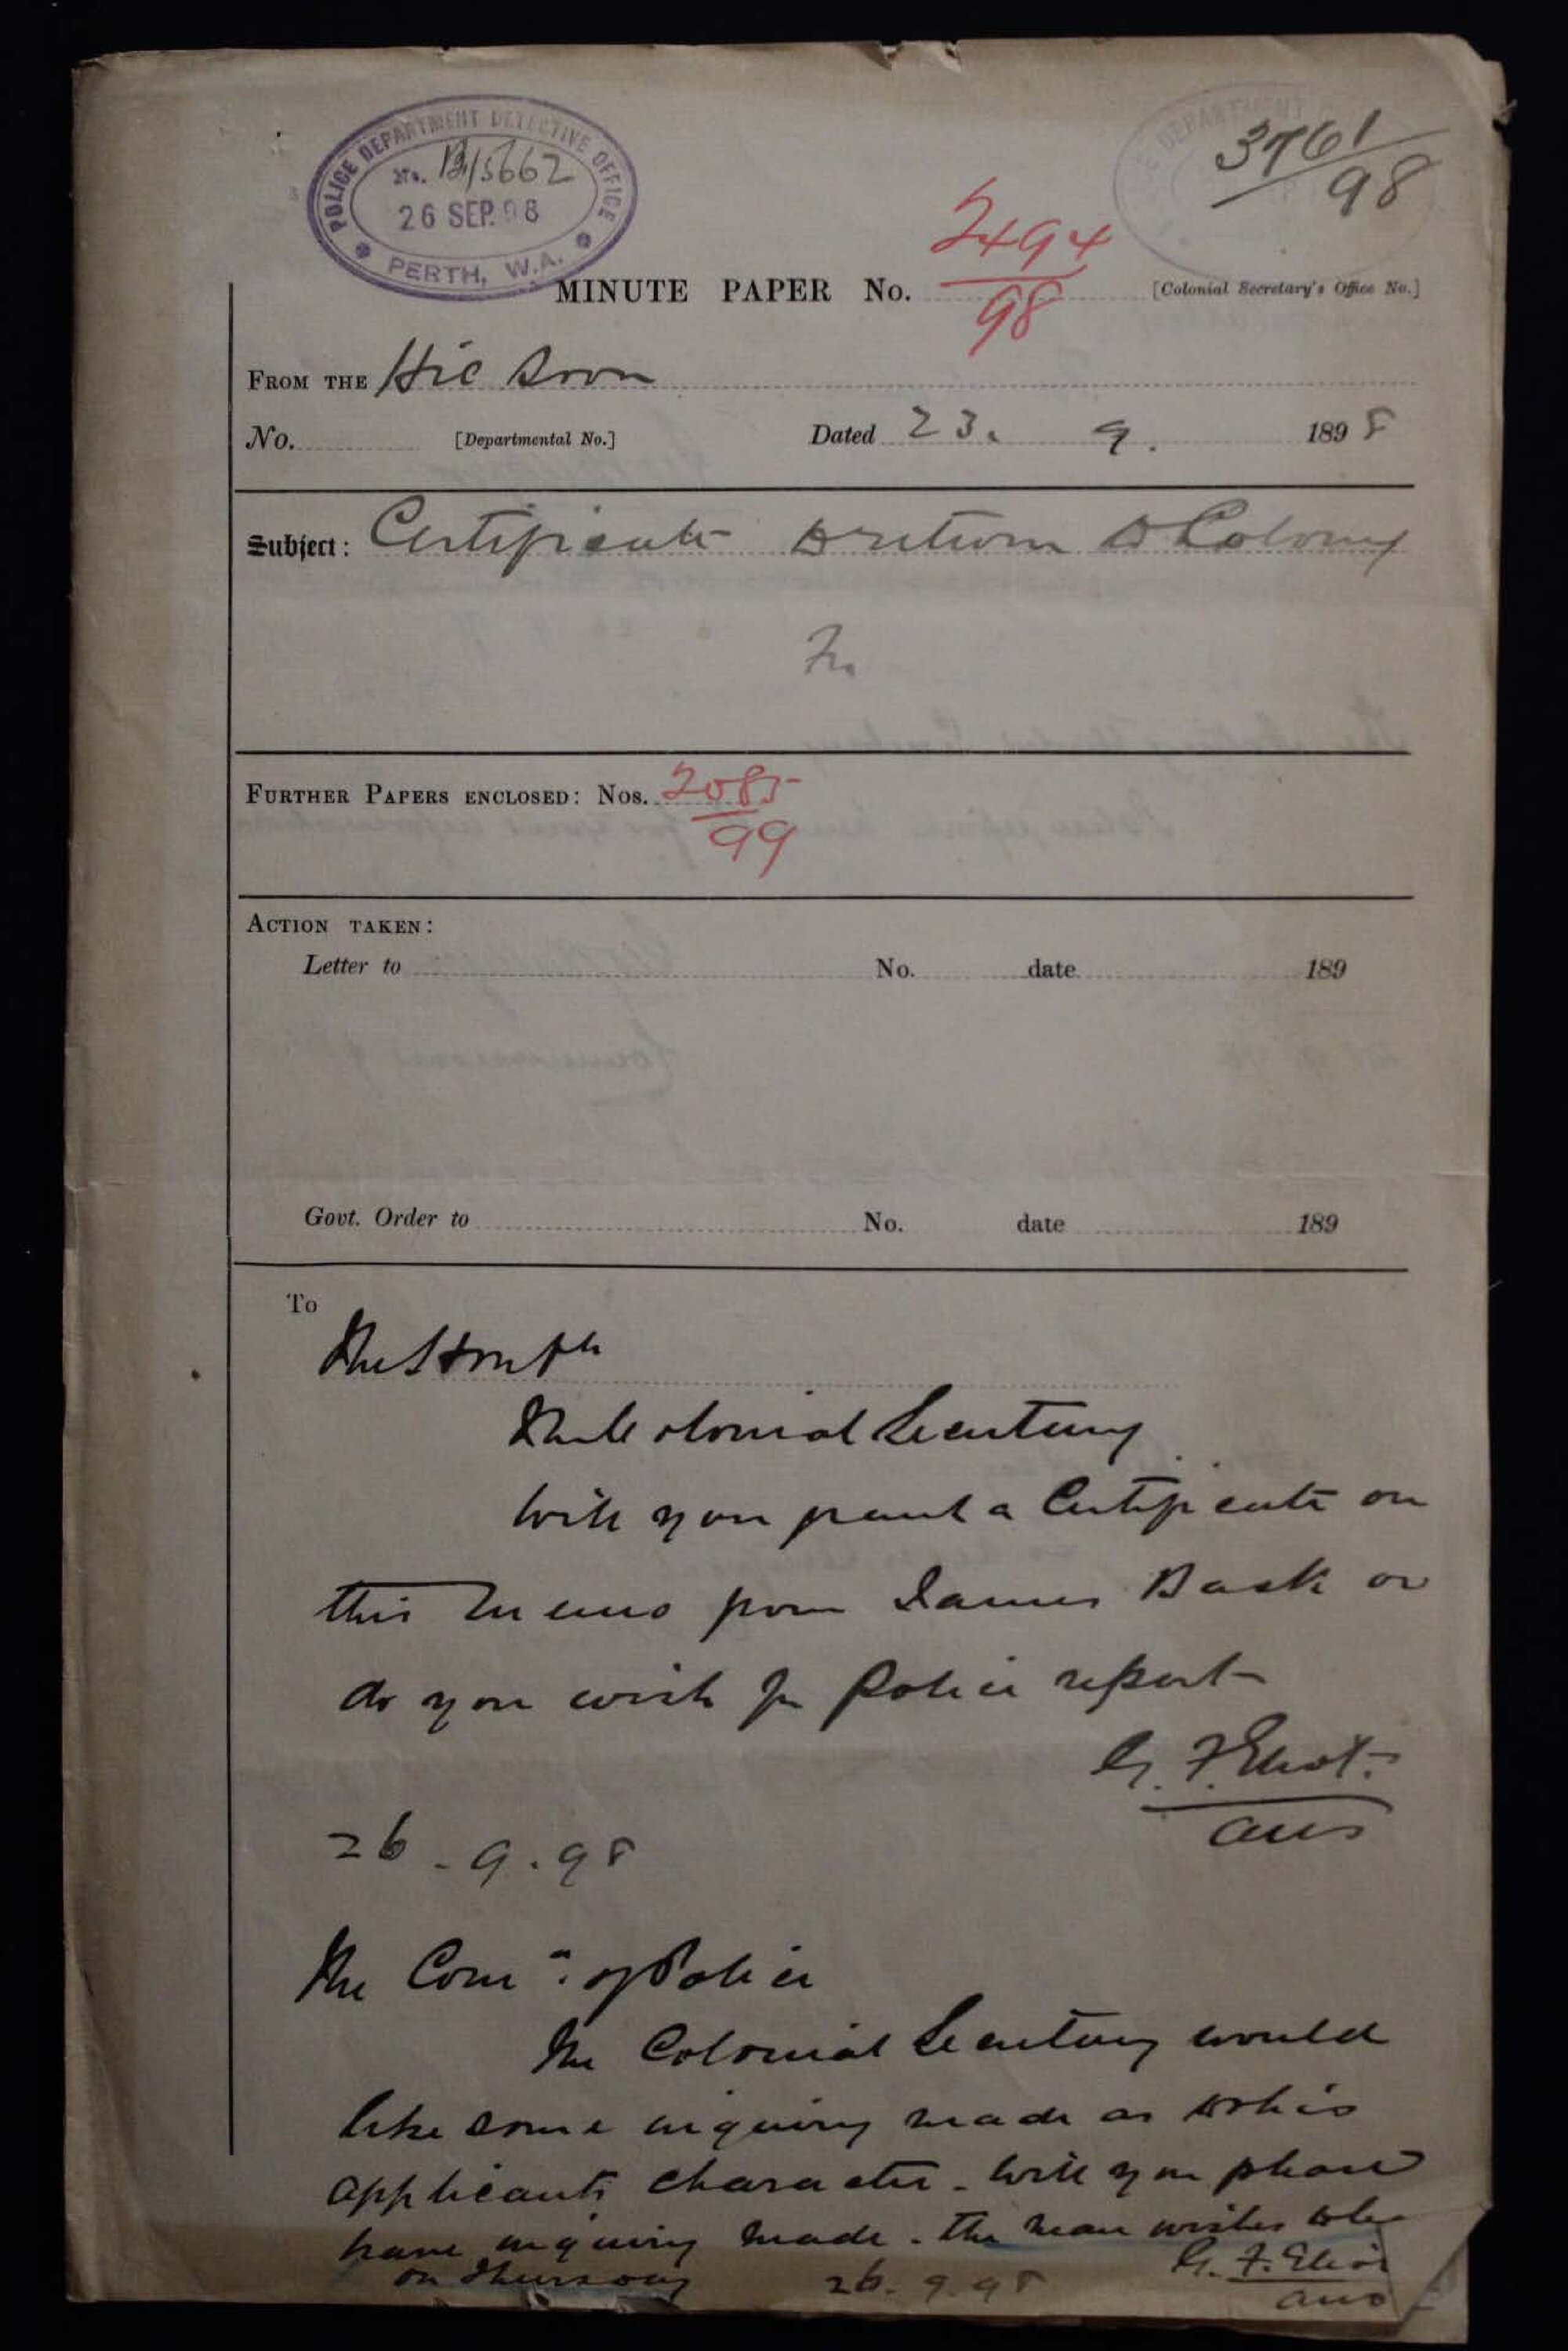 POLICE DEPARTMENT DETECTIVE OFFICE
No. 13/5662
26 SEP. 98
PERTH, W.A.
3761/98
2494/98
MINUTE PAPER No.
[Colonial Secretary's Office No.]
FROM THE Hie Soon
No. [Departmental No.] Dated 23. 9. 1898
Subject: Certificate to return to Colony
FURTHER PAPERS ENCLOSED: Nos. 2085/99
ACTION TAKEN:
Letter to No. date 189
Govt. Order to No. date 189
To
The Honble
The Colonial Secretary
Will you grant a Certificate on
this memo from James Bask or
do you wish for Police report
G. F. Eliot.
aus
26.9.98
The Comr. of Police
The Colonial Secretary would
like some inquiry made as to this
applicants character. Will you please
have inquiry made. The man wishes to leave
on Thursday 26.9.98
G. F. Eliot
aus